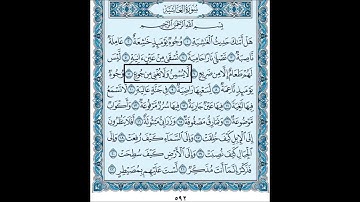 سُورَةُ الْغَاشِيَةِ
بِسْمِ اللَّهِ الرَّحْمَٰنِ الرَّحِيمِ
هَلْ أَتَىٰكَ حَدِيثُ الْغَٰشِيَةِ ١ وُجُوهٌ يَوْمَئِذٍ خَٰشِعَةٌ ٢ عَامِلَةٌ
نَّاصِبَةٌ ٣ تَصْلَىٰ نَارًا حَامِيَةً ٤ تُسْقَىٰ مِنْ عَيْنٍ ءَانِيَةٍ ٥ لَّيْسَ
لَهُمْ طَعَامٌ إِلَّا مِن ضَرِيعٍ ٦ لَّا يُسْمِنُ وَلَا يُغْنِي مِن جُوعٍ ٧ وُجُوهٌ
يَوْمَئِذٍ نَّاعِمَةٌ ٨ لِّسَعْيِهَا رَاضِيَةٌ ٩ فِي جَنَّةٍ عَالِيَةٍ ١٠ لَّا تَسْمَعُ
فِيهَا لَٰغِيَةً ١١ فِيهَا عَيْنٌ جَارِيَةٌ ١٢ فِيهَا سُرُرٌ مَّرْفُوعَةٌ ١٣ وَأَكْوَابٌ
مَّوْضُوعَةٌ ١٤ وَنَمَارِقُ مَصْفُوفَةٌ ١٥ وَزَرَابِيُّ مَبْثُوثَةٌ ١٦ أَفَلَا يَنظُرُونَ
إِلَى الْإِبِلِ كَيْفَ خُلِقَتْ ١٧ وَإِلَى السَّمَاءِ كَيْفَ رُفِعَتْ ١٨ وَإِلَى
الْجِبَالِ كَيْفَ نُصِبَتْ ١٩ وَإِلَى الْأَرْضِ كَيْفَ سُطِحَتْ ٢٠
فَذَكِّرْ إِنَّمَا أَنتَ مُذَكِّرٌ ٢١ لَّسْتَ عَلَيْهِم بِمُصَيْطِرٍ ٢٢
٥٩٢